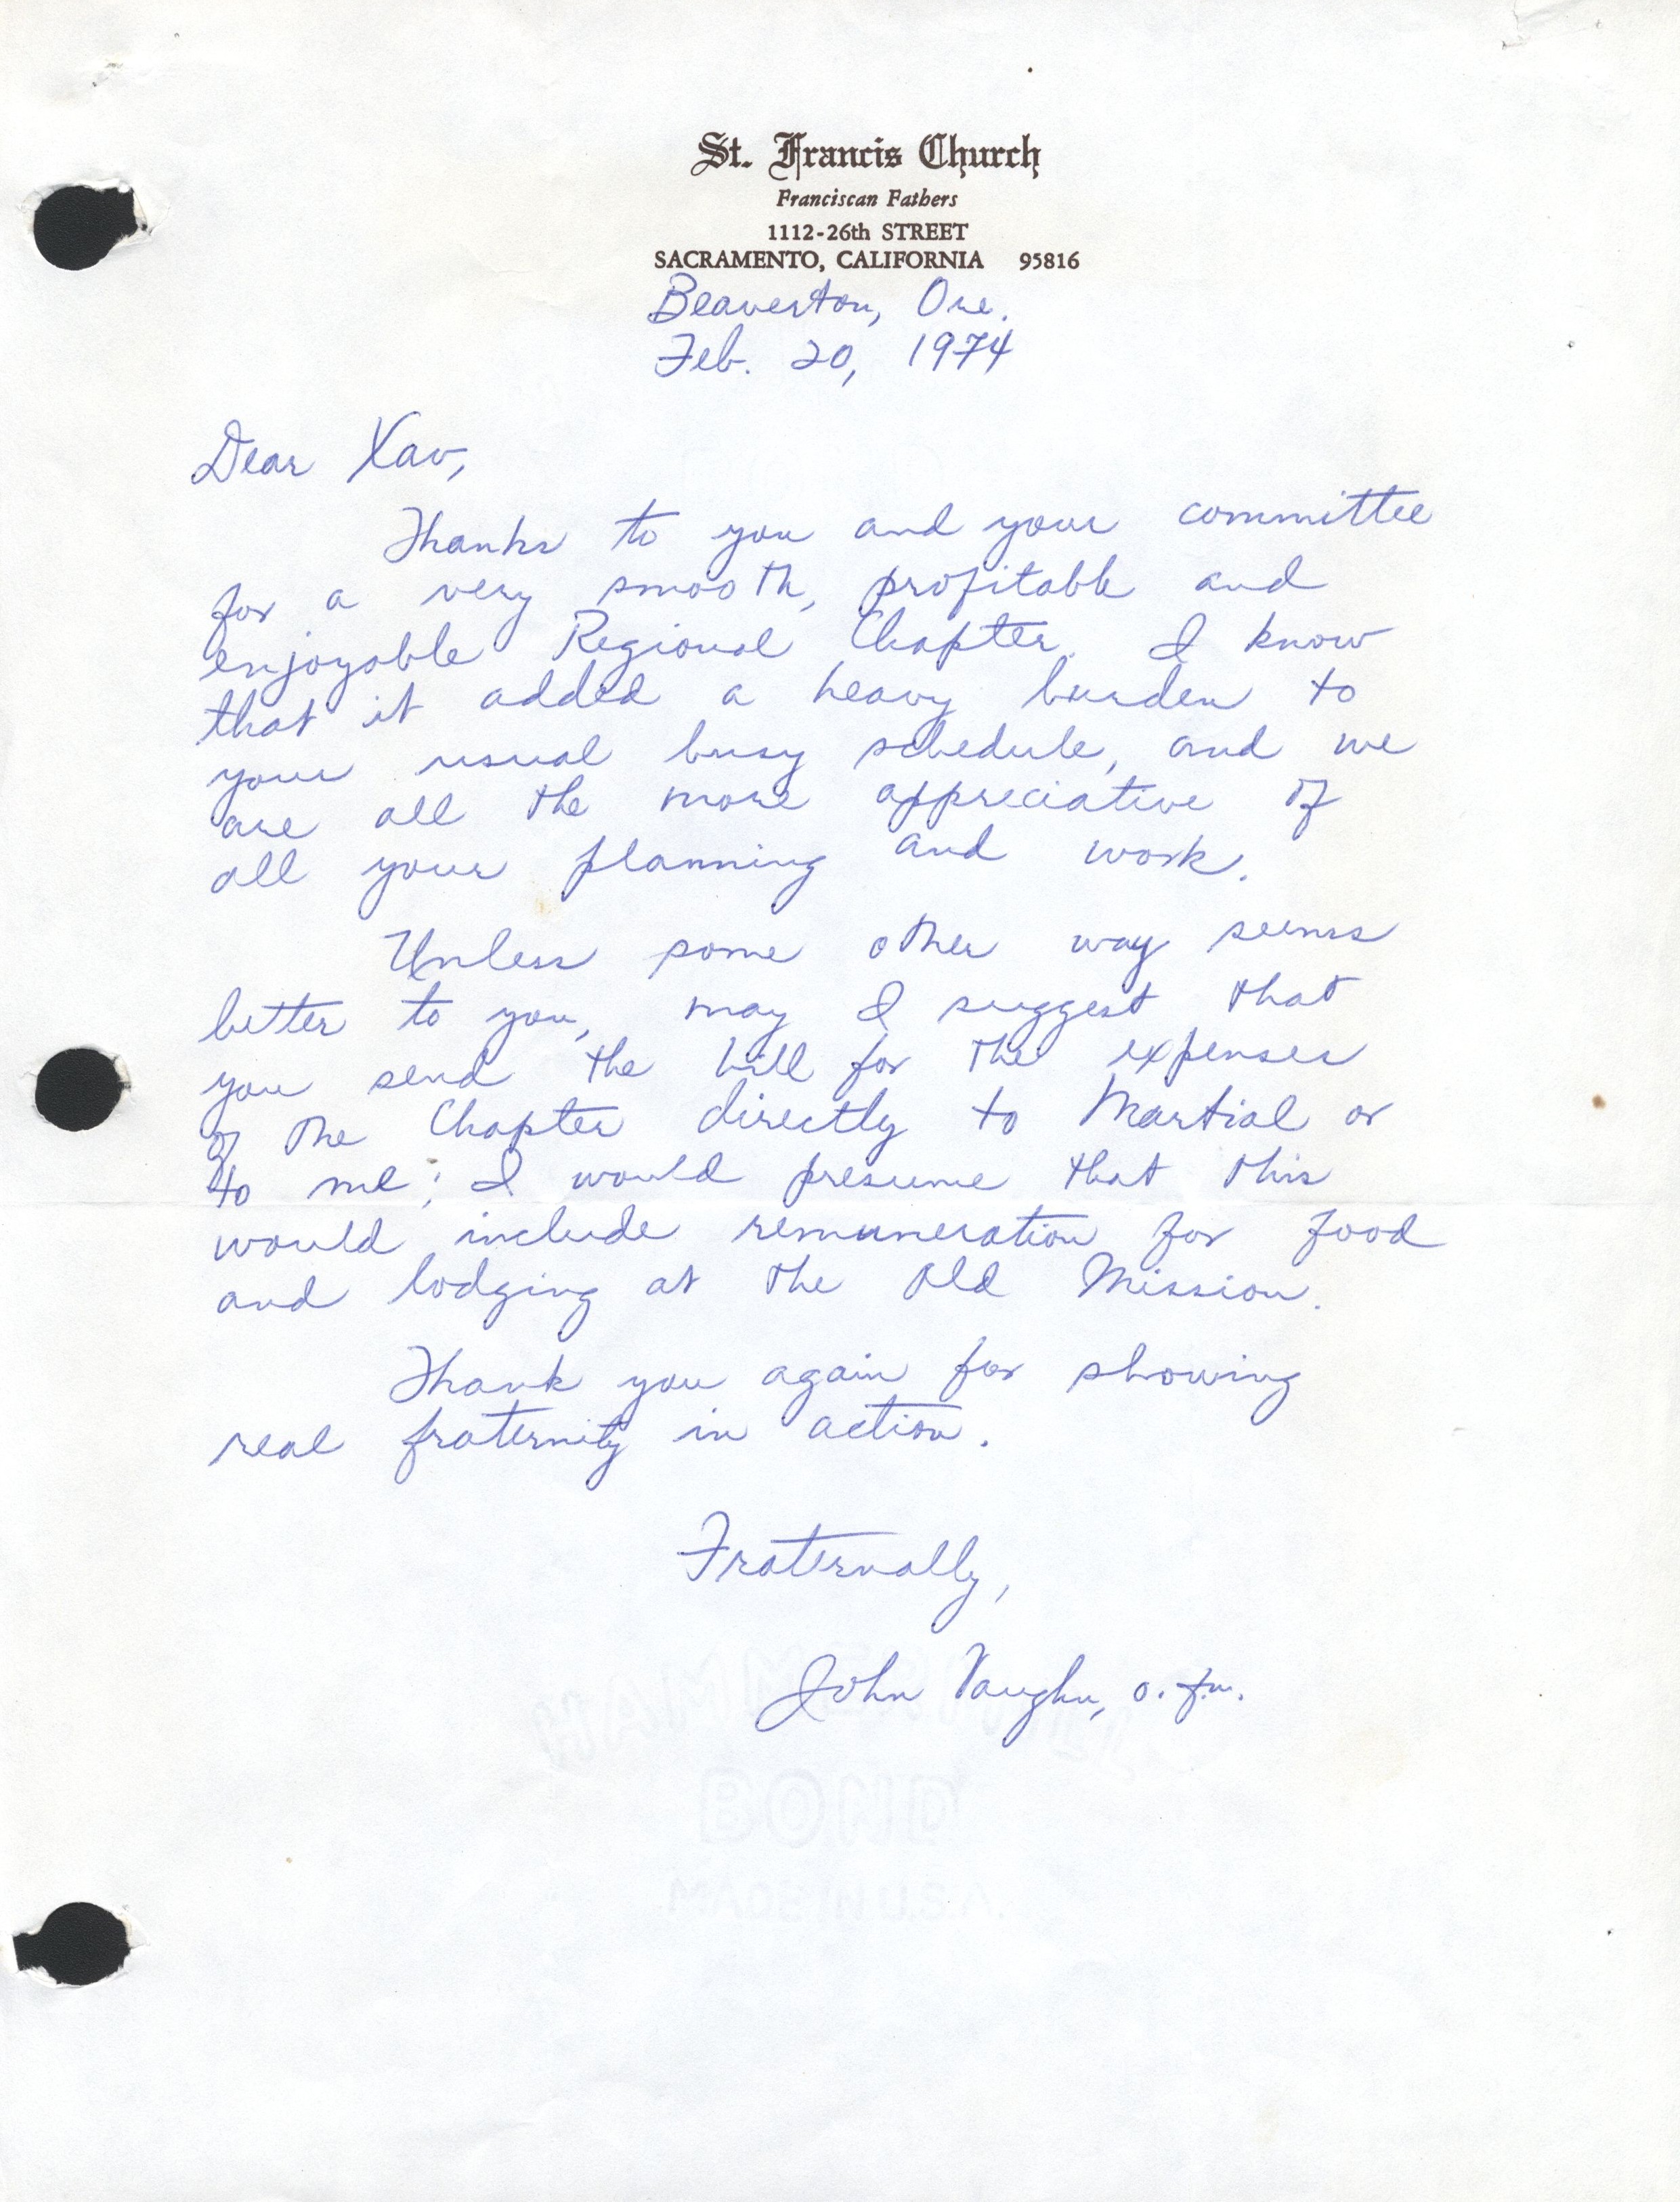 St. Francis Church
Franciscan Fathers
1112-26th STREET
SACRAMENTO, CALIFORNIA 95816
Beaverton, Ore.
Feb. 20, 1974
Dear Xav,
Thanks to you and your committee
for a very smooth, profitable and
enjoyable Regional Chapter. I know
that it added a heavy burden to
your usual busy schedule, and we
are all the more appreciative of
all your planning and work.
Unless some other way seems
better to you, may I suggest that
you send the bill for the expenses
of the Chapter directly to Martial or
to me; I would presume that this
would include remuneration for food
and lodging at the Old Mission.
Thank you again for showing
real fraternity in action.
Fraternally,
John Vaughn, o.f.m.
HAMMERMILL
BOND